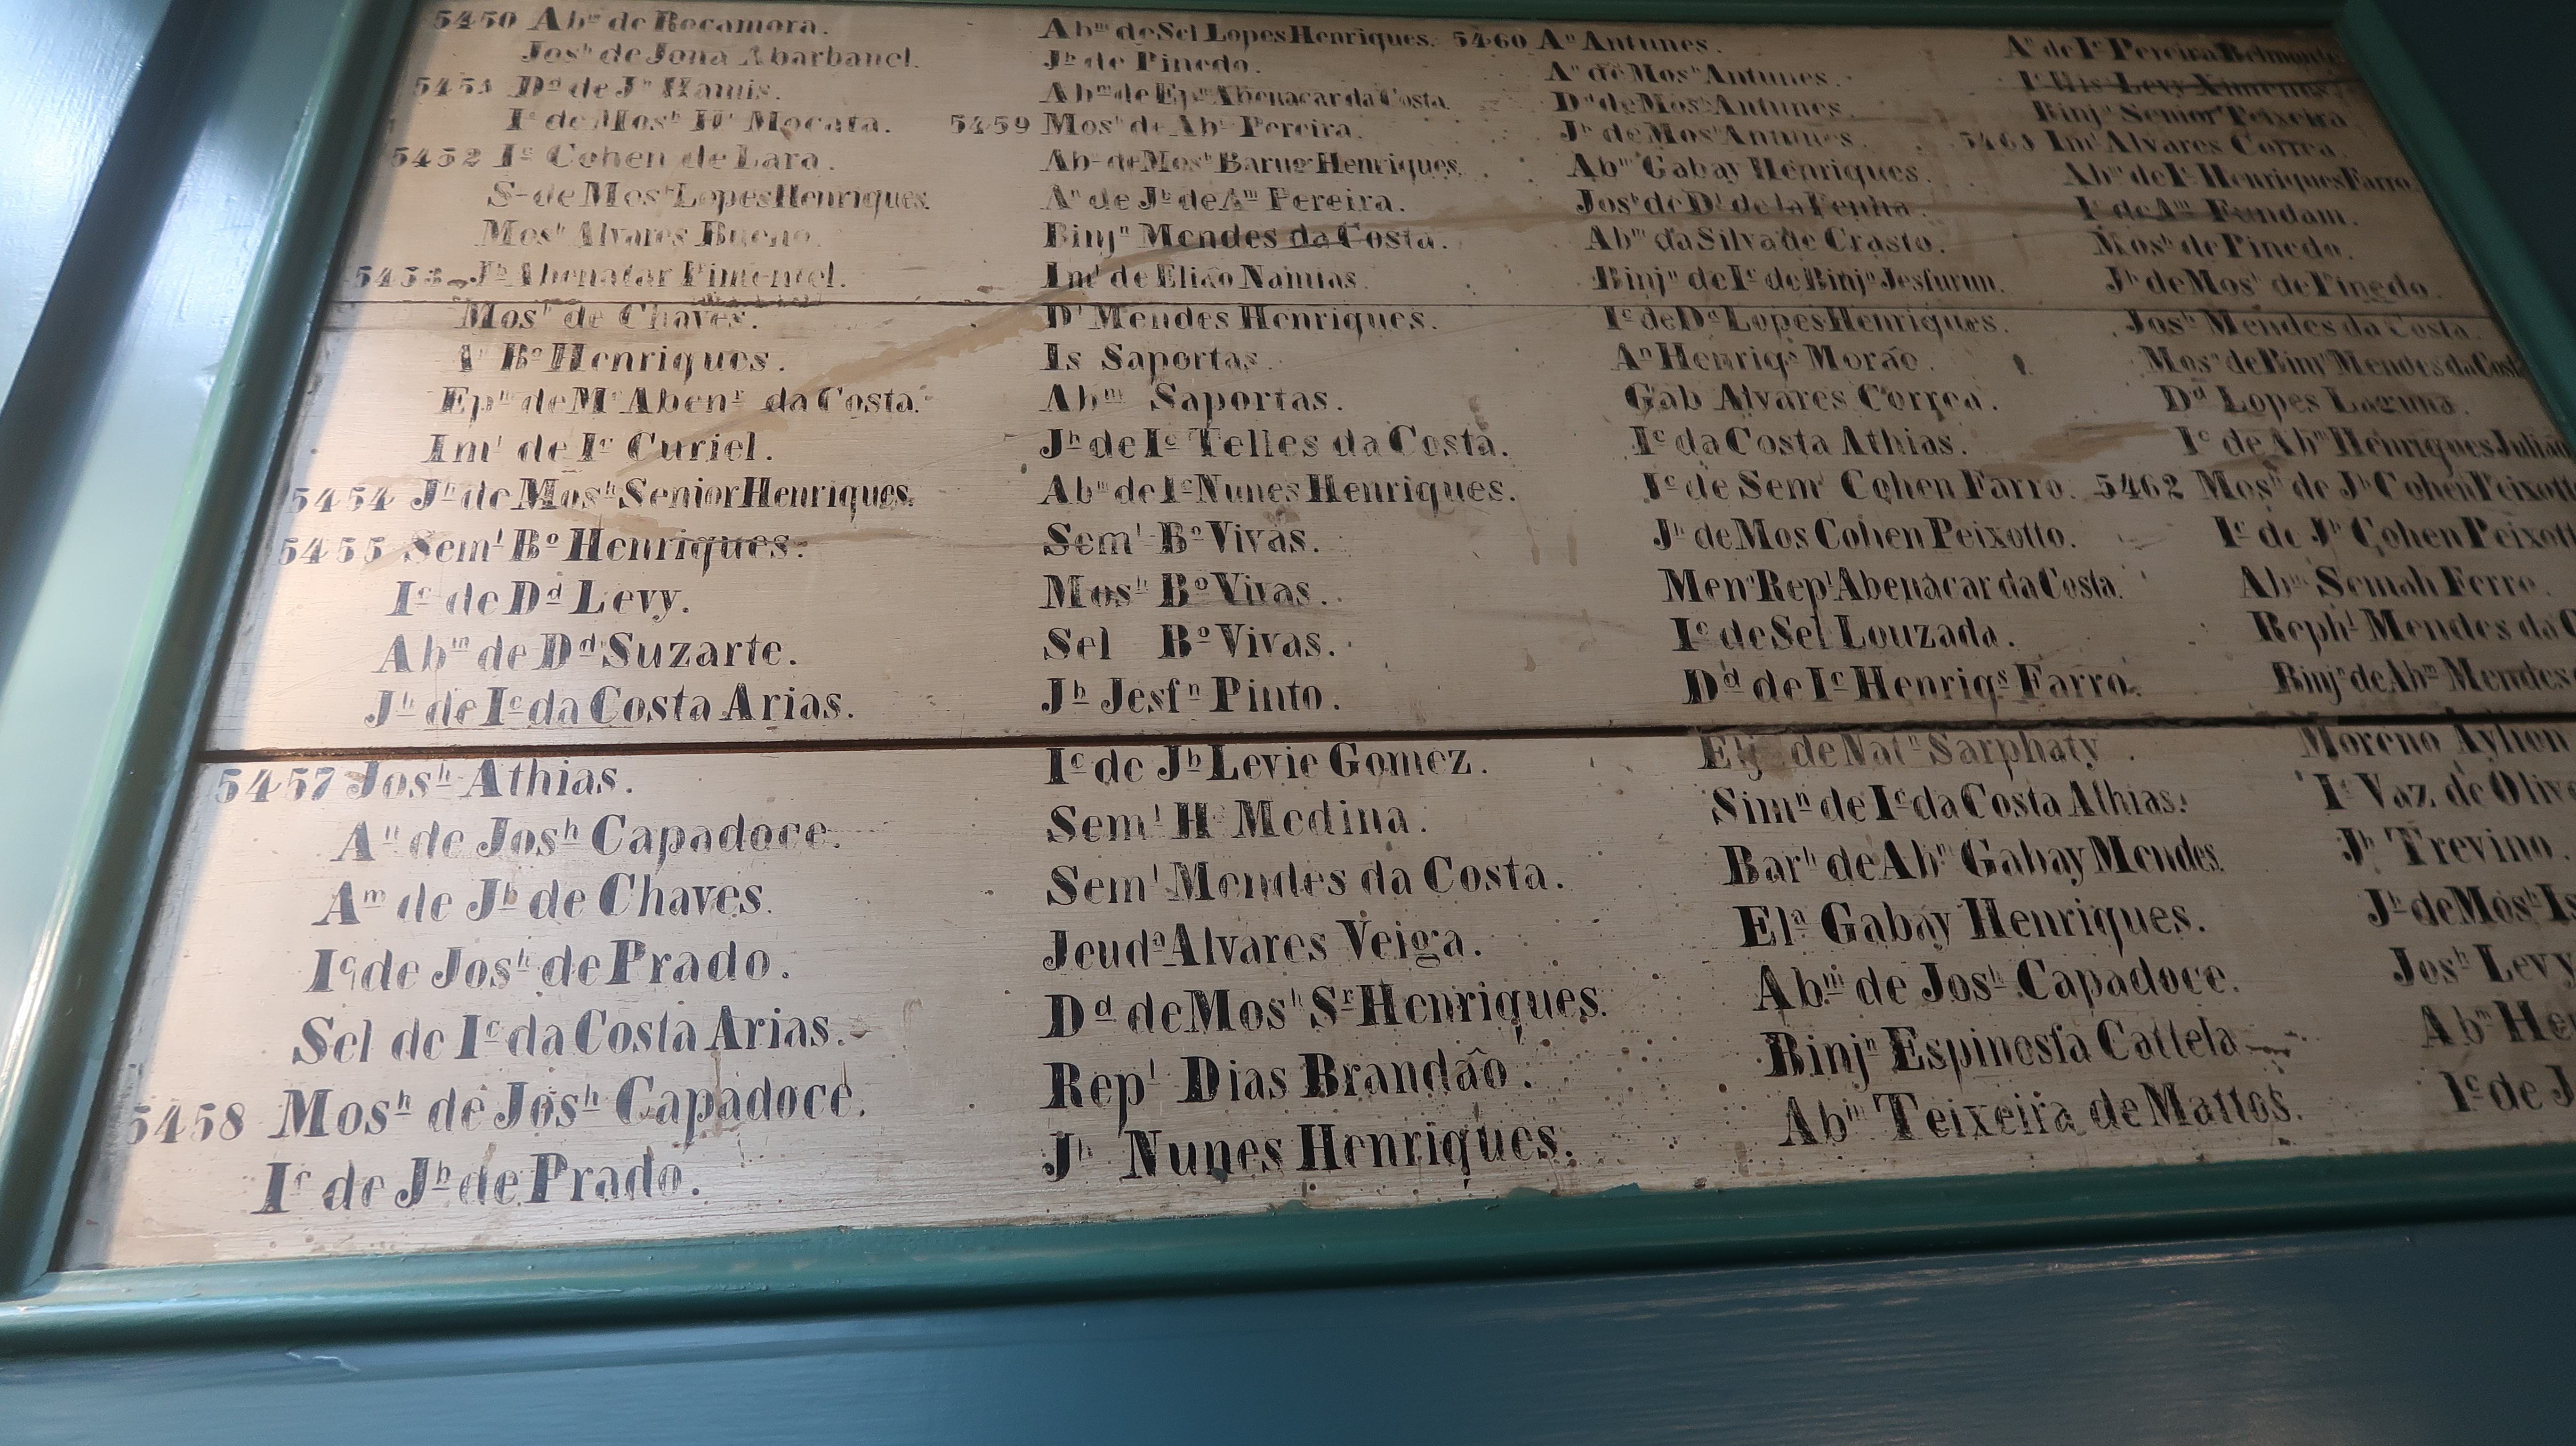 5450 Abᵐ de Rocamora.
Josʰ de Jona Abarbanel.
5451 Dᵈ de Jʰ Hamis.
Iᶜ de Mosʰ Mocata.
5452 Iᶜ Cohen de Lara.
de Mosʰ Lopes Henriques.
Mosʰ Alvares Bueno.
5453 Jʰ Abenatar Pimentel.
Mosʰ de Chaves.
Bº Henriques.
Epᵐ de Mˢ Abenʳ da Costa.
Imˡ de Iᶜ Curiel.
5454 Jʰ de Mosʰ Senior Henriques.
5455 Semˡ Bº Henriques.
Iᶜ de Dᵈ Levy.
Abᵐ de Dᵈ Suzarte.
Jʰ de Iᶜ da Costa Arias.
5457 Josʰ Athias.
Aⁿ de Josʰ Capadoce.
Aᵐ de Jʰ de Chaves.
Iᶜ de Josʰ de Prado.
Sel de Iᶜ da Costa Arias.
5458 Mosʰ de Josʰ Capadoce.
Iᶜ de Jʰ de Prado.
Abᵐ de Sel Lopes Henriques.
Jʰ de Pinedo.
Abᵐ de Epᵐ Abenacar da Costa.
5459 Mosʰ de Abᵐ Pereira.
Abᵐ de Mosʰ Barug Henriques.
Aⁿ de Jʰ de Aᵐ Pereira.
Binjⁿ Mendes da Costa.
Imˡ de Eliao Namias.
Dˡ Mendes Henriques.
Is Saportas.
Abᵐ Saportas.
Jʰ de Iᶜ Telles da Costa.
Abᵐ de Iᶜ Nunes Henriques.
Semˡ Bº Vivas.
Mosʰ Bº Vivas.
Sel Bº Vivas.
Jʰ Jesſⁿ Pinto.
Iᶜ de Jʰ Levie Gomez.
Semˡ Hᵐ Medina.
Semˡ Mendes da Costa.
Jeudᵃ Alvares Veiga.
Dᵈ de Mosʰ Sʳ Henriques.
Repˡ Dias Brandão.
Jʰ Nunes Henriques.
5460 Aⁿ Antunes.
Aⁿ de Mosʰ Antunes.
Dᵈ de Mosʰ Antunes.
Jʰ de Mosʰ Antunes.
Abᵐ Gabay Henriques.
Josʰ de Dˡ de la Penha.
Abᵐ da Silva de Crasto.
Binjⁿ de Iᶜ de Binjⁿ Jesſurun.
Iᶜ de Dᵈ Lopes Henriques.
Aⁿ Henriqˢ Morão.
Gab Alvares Correa.
Iᶜ da Costa Athias.
Iᶜ de Semˡ Cohen Farro.
Jʰ de Mos Cohen Peixotto.
Menᵃ Repˡ Abenacar da Costa.
Iᶜ de Sel Louzada.
Dᵈ de Iᶜ Henriqˢ Farro.
Elj de Natⁿ Sarphaty.
Simⁿ de Iᶜ da Costa Athias.
Barʰ de Abᵐ Gabay Mendes.
Elᵃ Gabay Henriques.
Abᵐ de Josʰ Capadoce.
Binjⁿ Espinosſa Cattela
Abᵐ Teixeira de Mattos.
Aⁿ de Iᶜ Pereira Belmonte
Levy Ximenes.
Binjⁿ Senior Teixeira
5461 Imˡ Alvares Correa.
Abᵐ de Iᶜ Henriques Farro.
Iᶜ de Aᵐ Fundam.
Mosʰ de Pinedo.
Jʰ de Mosʰ de Pinedo.
Josʰ Mendes da Costa.
Mosʰ de Binjⁿ Mendes da Cost
Dᵈ Lopes Laguna.
Iᶜ de Abᵐ Henriques Juliao
5462 Mosʰ de Jʰ Cohen Peixott
Iᶜ de Jʰ Cohen Peixott
Abᵐ Semah Ferro.
Rephˡ Mendes da C
Binjⁿ de Abᵐ Mendes
Moreno Aylion
Iᶜ Vaz de Olive
Jʰ Trevino.
Jʰ de Mosʰ Is
Josʰ Levy
Abᵐ He
Iᶜ de J